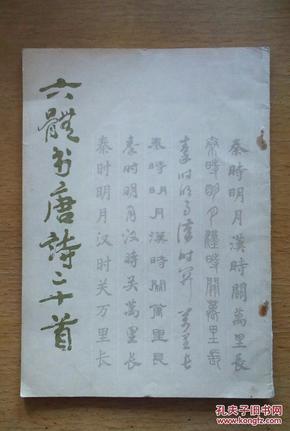 六體书唐詩二十首
秦時明月漢時關萬里長
秦時明月漢時關萬里長
秦时明月漢时关萬里长
秦時明月漢時關萬里長
秦时明月汉時关萬里長
秦时明月汉时关万里长
孔夫子旧书网